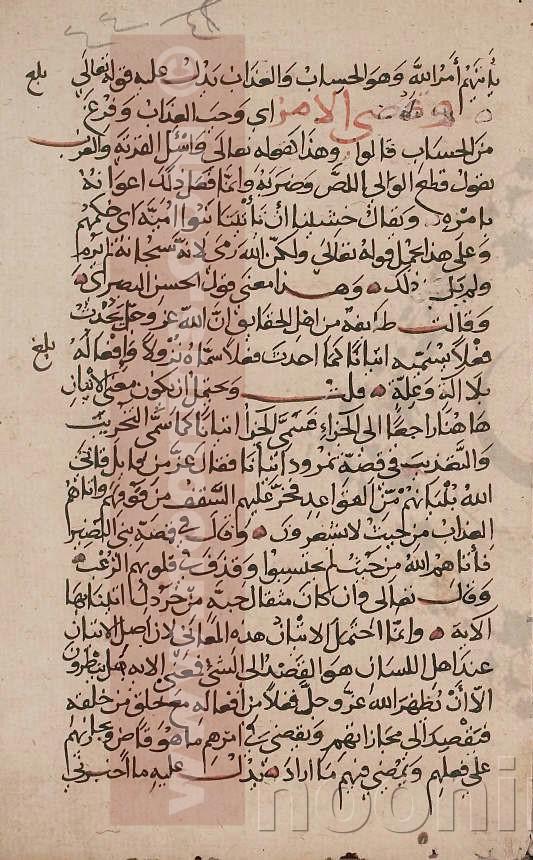 يأتيهم أمر الله وهو الحساب والعذاب يدل عليه قوله تعالى
بلغ
وقضي الأمر اي وجب العذاب وفرغ
من الحساب قالوا وهذا كقوله تعالى واسئل القرية والعرب
يقول قطع الوالي اللص وضربه وانما فعل ذلك اعوانه
بامره ويقال خشينا ان يأتينا بنوا امية اي حكمهم
وعلى هذا يحمل قوله تعالى ولكن الله رمى لانه سبحانه امرهم
ولم يل ذلك وهذا معنى قول الحسن البصري
وقالت طائفة من اهل الحقايق ان الله عز وجل يحدث
فعلا يسميه اتيانا كما احدث فعلا سماه نزولا وافعاله
بلغ
بلا آلة وعلة قلت ويحتمل ان يكون معنى الاتيان
هاهنا راجعا الى الجزاء فسمى الجزاء اتيانا كما سمى التخريب
والتعذيب في قصة نمرود اتيانا فقال عز من قايل فاتى
الله بنيانهم من القواعد فخر عليهم السقف من فوقهم واتاهم
العذاب من حيث لا يشعرون وقال في قصة بني النضير
فأتاهم الله من حيث لم يحتسبوا وقذف في قلوبهم الرعب
وقال تعالى وان كان مثقال حبة من خردل اتينا بها
الآية وانما احتمل الاتيان هذه المعاني لان اصل الاتيان
عند اهل اللسان هو القصد الى الشئ فمعنى الاية هل ينظرون
الا ان يظهر الله عز وجل فعلا من افعاله مع خلق من خلقه
فيقصد الى مجازاتهم ويقضي في امرهم ما هو قاض ويجازيهم
على فعلهم ويمضي فيهم ما اراد يدل عليه ما اخبرني
www.
nooni